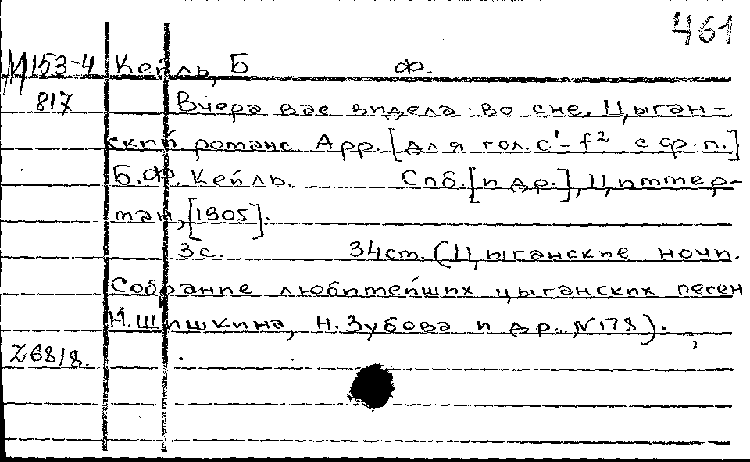 461
М153-4 Кейль, Б Ф.
817 Вчера вас видела во сне. Цыган-
ский романс. Арр. [для гол. c'-f² с ф-п.]
Б.Ф. Кейль. Спб. [и др.], Циммер-
ман, [1905].
3 с. 34 см. (Цыганские ночи.
Собрание любимейших цыганских песен
Н. Шишкина, Н. Зубова и др. №178).